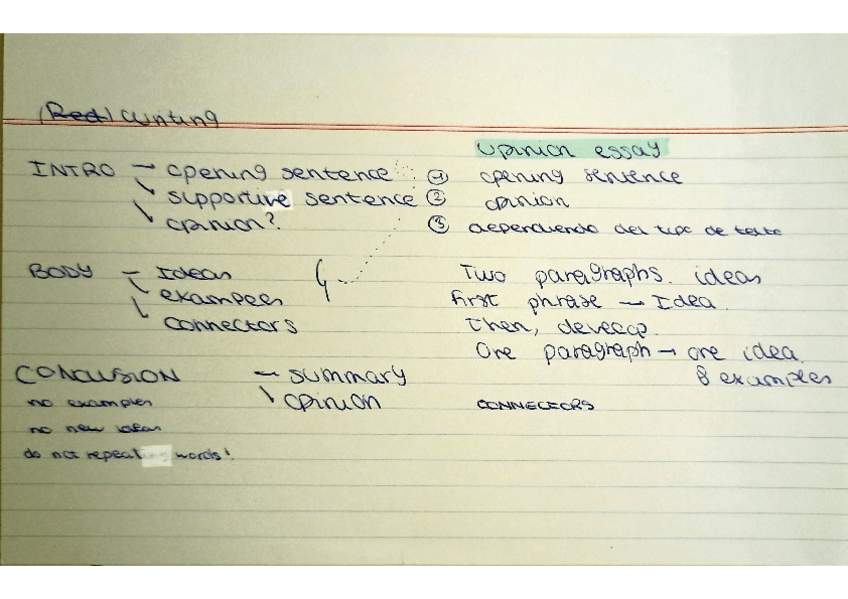 (Red) Writing
Opinion essay
INTRO → opening sentence ① opening sentence
↳ supportive sentence ② opinion
↳ opinion? ③ dependiendo del tipo de texto
BODY — Ideas Two paragraphs. ideas
↳ examples first phrase → Idea.
↳ connectors Then, develop.
One paragraph → one idea.
CONCLUSION — summary & examples
no examples ↳ opinion CONNECTORS
no new ideas
do not repeating words!